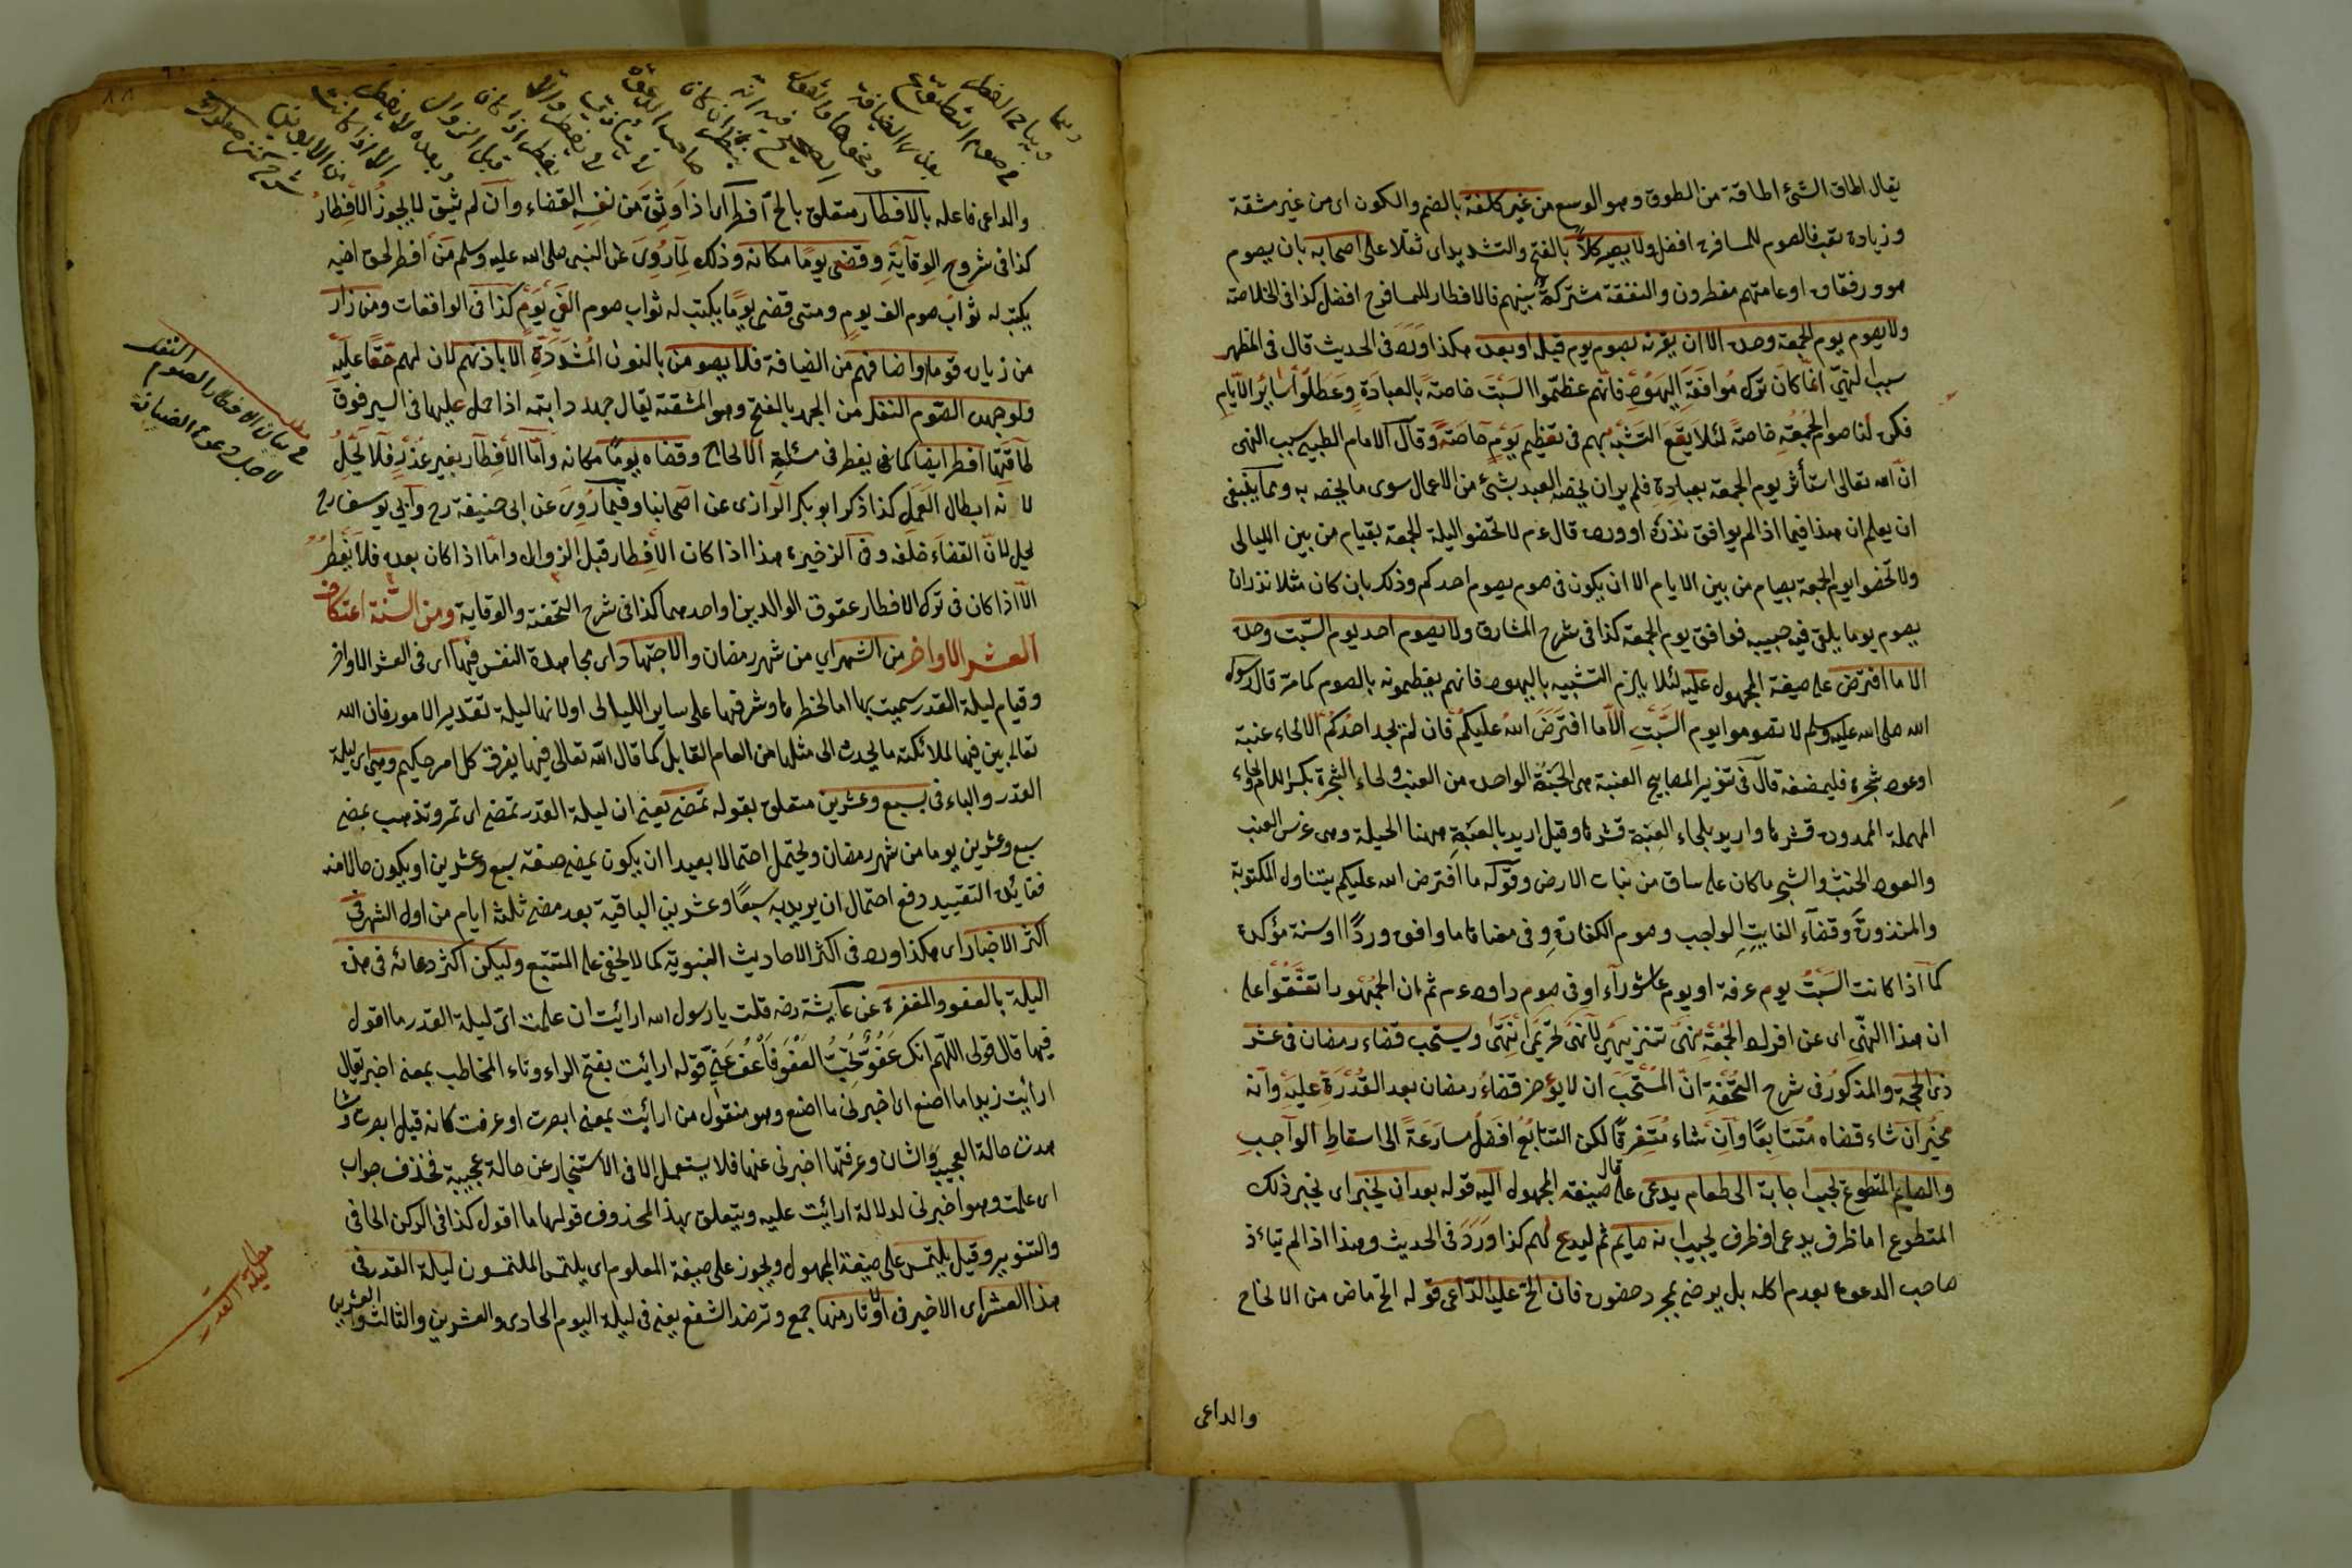 يقال اطاق الشئ اطاقة من الطوق وهو الوسع من غير كلفة بالضم والكون اى من غير مشقة
وزيادة تعب فالصوم للمسافر ح افضل ولا يصير كلاًّ بالفتح والتشديد اى ثقلا على اصحابه بان يصوم
هو ورفقاؤه او عامتهم مفطرون والنفقة مشتركة بينهم فالافطار للمسافر ح افضل كذا فى الخلاصة
ولا يصوم يوم الجمعة وحده الا ان يقرنه بصوم يوم قبله او بعده هكذا ورد فى الحديث قال فى المظهر
سبب النهى انما كان ترك موافقة اليهود فانهم عظموا السبت خاصة بالعبادة وعطلوا سائر الايام
فكره لنا صوم الجمعة خاصة لئلا يقع التشبه بهم فى تعظيم يوم خاصة وقال الامام الطيبى سبب النهى
ان الله تعالى استأثر يوم الجمعة بعبادة فلم ير ان يخصه العبد بشئ من الاعمال سوى ما يخصه به ومما ينبغى
ان يعلم ان هذا فيما اذا لم يوافق نذره او ورده قال عم لا تخصوا ليلة الجمعة بقيام من بين الليالى
ولا تخصوا يوم الجمعة بصيام من بين الايام الا ان يكون فى صوم يصوم احدكم وذلك بان كان مثلا نذر ان
يصوم يوما يلقى فيه حبيبه فوافق يوم الجمعة كذا فى شرح المشارق ولا يصوم احد يوم السبت وحده
الا ما افترض على صيغة المجهول عليه لئلا يلزم التشبيه باليهود فانهم يعظمونه بالصوم كما مر قال رسول
الله صلى الله عليه وسلم لا تصوموا يوم السبت الا ما افترض الله عليكم فان لم يجد احدكم الا لحاء عنبة
او عود شجرة فليمضغه قال فى تنوير المصابيح العنبة هى الحبة الواحدة من العنب ولحاء الشجرة بكسر اللام والحاء
المهملة الممدودة قشرها واريد بلحاء العنبة قشرها وقيل اريد بالعنبة ههنا الحبلة وهى غرس العنب
والعود الخشب والشجر ما كان على ساق من نبات الارض وقوله ما افترض الله عليكم يتناول المكتوبة
والمنذورة وقضاء الفايت الواجب وصوم الكفارة وفى معناها ما وافق وردًا او سنة مؤكدة
كما اذا كانت السبت يوم عرفة او يوم عاشوراء او فى صوم داود عم ثم ان الجمهور اتفقوا على
ان هذا النهى اى عن افراد الجمعة نهى تنزيهى لا نهى تحريم انتهى ويستحب قضاء رمضان فى عشر
ذى الحجة والمذكور فى شرح التحفة ان المستحب ان لا يؤخر قضاء رمضان بعد القدرة عليه وانه
مخير ان شاء قضاه متتابعًا وان شاء متفرقًا لكن التتابع افضل مسارعةً الى اسقاط الواجب
والصايم المتطوع يجب اجابة الى طعام يدعى على صيغة المجهول اليه قوله بعد ان يخبر اى يخبر ذلك
المتطوع اما ظرف يدعى او ظرف يجيب انه صايم ثم ليدع لهم كذا ورد فى الحديث وهذا اذا لم يتاءذ
صاحب الدعوة بعدم اكله بل يرضى بمجرد حضوره فان الح عليه الداعى قوله الح ماض من الالحاح
والداعى
والداعى فاعله بالافطار متعلق بالح افطر اى اذا وثق من نفسه القضاء وان لم يثق لا يجوز الافطار
كذا فى شروح الوقاية وقضى يومًا مكانه وذلك لما روى عن النبى صلى الله عليه وسلم من افطر لحق اخيه
يكتب له ثواب صوم الف يوم ومتى قضى يومًا يكتب له ثواب صوم الفى يوم كذا فى الواقعات ومن زار
من زياره قوما واضافهم من الضيافة فلا يصومن بالنون المشددة الا باذنهم لان لهم حقًا عليه
ولو جهده الصوم النفل من الجهد بالفتح وهو المشقة يقال جهد دابته اذا حمل عليها فى السير فوق
طاقتها افطر ايضا كما يفطر فى مسئلة الالحاح وقضاه يومًا مكانه واما الافطار بغير عذر فلا يحل
لانه ابطال العمل كذا ذكر ابو بكر الرازى عن اصحابنا وفيما روى عن ابى حنيفة رح وابى يوسف رح
يحل لان القضاء خلفه وفى الزخيرة هذا اذا كان الافطار قبل الزوال واما اذا كان بعده فلا يفطر
الا اذا كان فى ترك الافطار عقوق الوالدين او احدهما كذا فى شرح التحفة والوقاية ومن السنة اعتكاف
العشر الاواخر من الشهر اى من شهر رمضان والاجتهاد اى مجاهدة النفس فيها اى فى العشر الاواخر
وقيام ليلة القدر سميت بها اما لخطرها وشرفها على ساير الليالى او لانها ليلة تقدير الامور فان الله
تعالى يبين فيها لملائكته ما يحدث الى مثلها من العام القابل كما قال الله تعالى فيها يفرق كل امر حكيم وهى اى ليلة
القدر والباء فى بسبع وعشرين متعلق بقوله تمضى يعنى ان ليلة القدر تمضى اى تمر وتذهب بمضى
سبع وعشرين يوما من شهر رمضان ويحتمل احتمالا بعيدا ان يكون بمضى صفة سبع وعشرين او يكون حالا منه
ففايدة التقييد دفع احتمال ان يريد به سبعًا وعشرين الباقية بعد مضى ثلثة ايام من اول الشهر فى
اكثر الاخبار اى هكذا ورد فى اكثر الاحاديث النبوية كما لا يخفى على المتتبع وليكن اكثر دعائه فى هذه
اليلة بالعفو والمغفرة عن عايشة رضه قلت يا رسول الله ارائيت ان علمت اى ليلة القدر ما اقول
فيها قال قولى اللهم انك عفو تحب العفو فاعف عنى قوله ارائيت بفتح الراء وتاء المخاطب بمعنى اخبر يقال
ارأيت زيدا ما اصنع اى اخبرنى ما اصنع وهو منقول من ارائيت بمعنى ابصرت او عرفت كانه قيل ابصرت وشا
هدت حالة العجيب والشان وعرفتها اخبرنى عنها فلا يستعمل الا فى الاستخبار عن حالة عجيبة فحذف جواب
اى علمت وهو اخبرنى لدلالة ارائيت عليه ويتعلق بهذا المحذوف قولها ما اقول كذا فى الركن الحافى
والتنوير وقيل يلتمس على صيغة المجهول ويجوز على صيغة المعلوم اى يلتمس الملتمسون ليلة القدر فى
هذا العشر اى الاخير فى اوتار منها جمع وتر ضد الشفع يعنى فى ليلة اليوم الحادى والعشرين والثالث والعشرين
فى بيان الافطار الصوم النفل
لاجل دعوة الضيافة
مطلب ليلة القدر